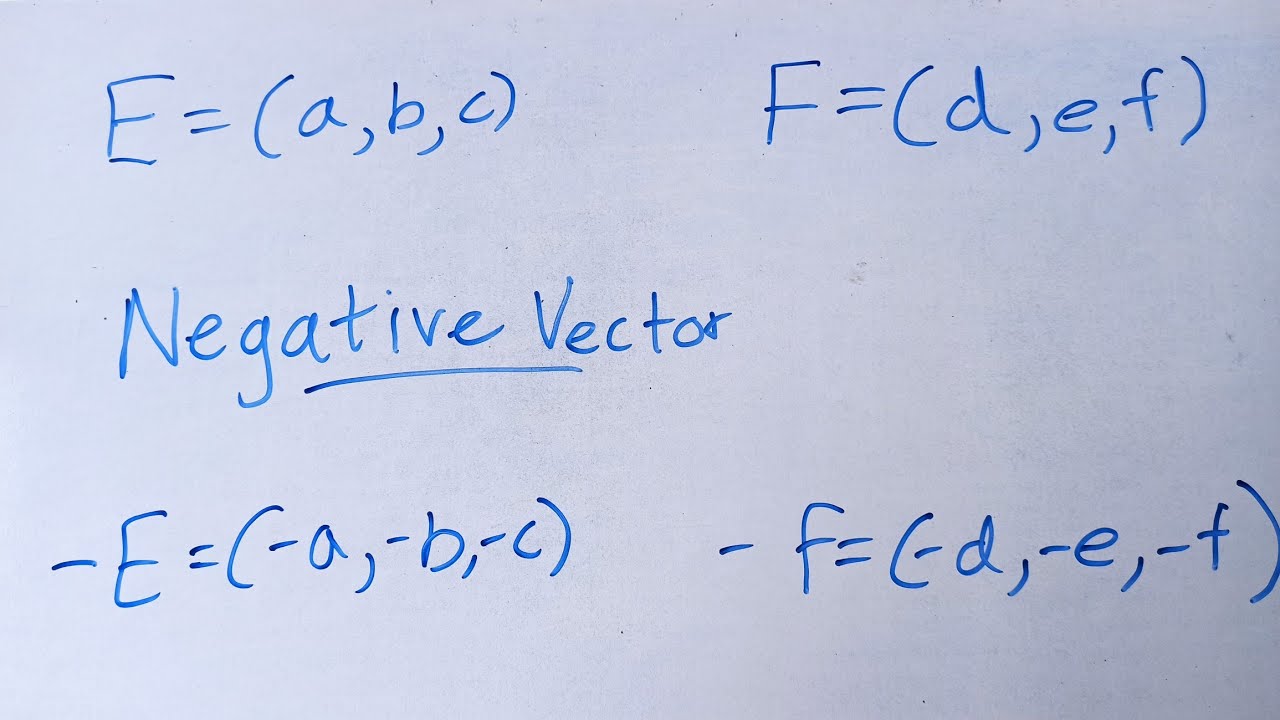 E = (a, b, c) F = (d, e, f)
Negative Vector
-E = (-a, -b, -c) - F = (-d, -e, -f)